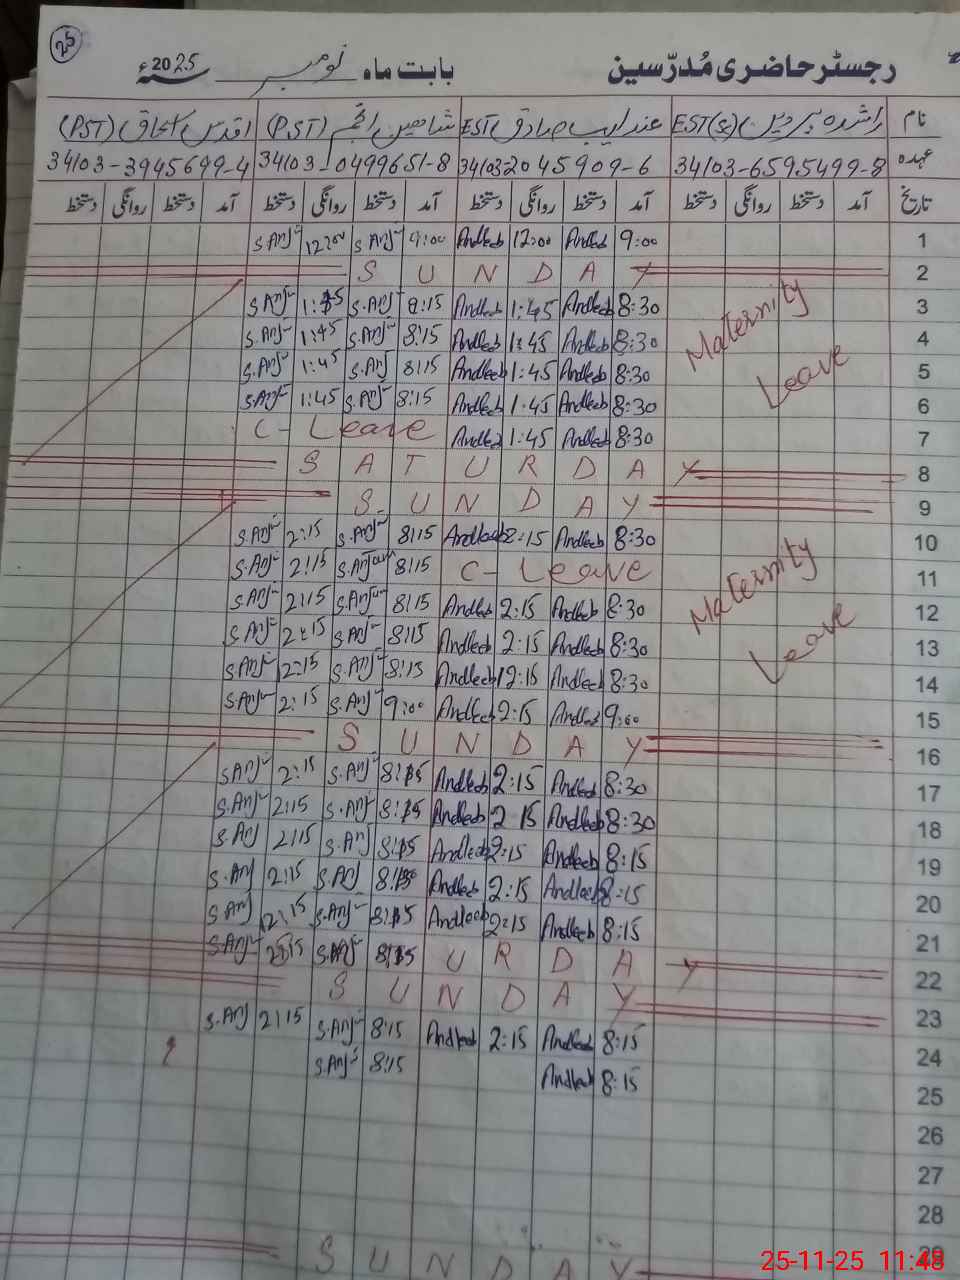 25
رجسٹر حاضری مُدرّسین بابت ماہ نومبر 2025ء
نام راشدہ پروین EST(SC) عندلیب صادق EST شاھین انجم (PST) اقدس اسحاق (PST)
عہدہ 34103-6595499-8 34103-2045909-6 34103-0499651-8 34103-3945699-4
تاریخ آمد دستخط روانگی دستخط آمد دستخط روانگی دستخط آمد دستخط روانگی دستخط آمد دستخط روانگی دستخط
1 9:00 Andleeb 12:00 Andleeb 9:00 S.Anj 12:00 S.Anj
2 SUNDAY
3 8:30 Andleeb 1:45 Andleeb 8:15 S.Anj 1:45 S.Anj
4 Maternity 8:30 Andleeb 1:45 Andleeb 8:15 S.Anj 1:45 S.Anj
5 Leave 8:30 Andleeb 1:45 Andleeb 8:15 S.Anj 1:45 S.Anj
6 8:30 Andleeb 1:45 Andleeb 8:15 S.Anj 1:45 S.Anj
7 8:30 Andleeb 1:45 Andleeb C-Leave
8 SATURDAY
9 SUNDAY
10 8:30 Andleeb 2:15 Andleeb 8:15 S.Anj 2:15 S.Anj
11 C-Leave 8:15 S.Anjum 2:15 S.Anj
12 Maternity 8:30 Andleeb 2:15 Andleeb 8:15 S.Anj 2:15 S.Anj
13 Leave 8:30 Andleeb 2:15 Andleeb 8:15 S.Anj 2:15 S.Anj
14 8:30 Andleeb 2:15 Andleeb 8:15 S.Anj 2:15 S.Anj
15 9:00 Andleeb 2:15 Andleeb 9:00 S.Anj 2:15 S.Anj
16 SUNDAY
17 8:30 Andleeb 2:15 Andleeb 8:15 S.Anj 2:15 S.Anj
18 8:30 Andleeb 2 15 Andleeb 8:15 S.Anj 2:15 S.Anj
19 8:15 Andleeb 2:15 Andleeb 8:15 S.Anj 2:15 S.Anj
20 8:15 Andleeb 2:15 Andleeb 8:15 S.Anj 2:15 S.Anj
21 8:15 Andleeb 2:15 Andleeb 8:15 S.Anj 2:15 S.Anj
22 URDAY 8:15 S.Anj 2:15 S.Anj
23 SUNDAY
24 8:15 Andleeb 2:15 Andleeb 8:15 S.Anj 2:15 S.Anj
25 8:15 Andleeb 8:15 S.Anj
26
27
28
29 SUNDAY
25-11-25 11:48